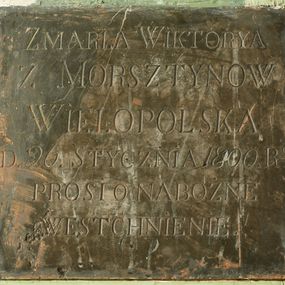 ZMARŁA WIKTORYA
Z MORSZTYNOW
WIELOPOLSKA
D. 26. STYCZNIA 1800. R
PROSI O NABOŻNE
WESTCHNIENIE.